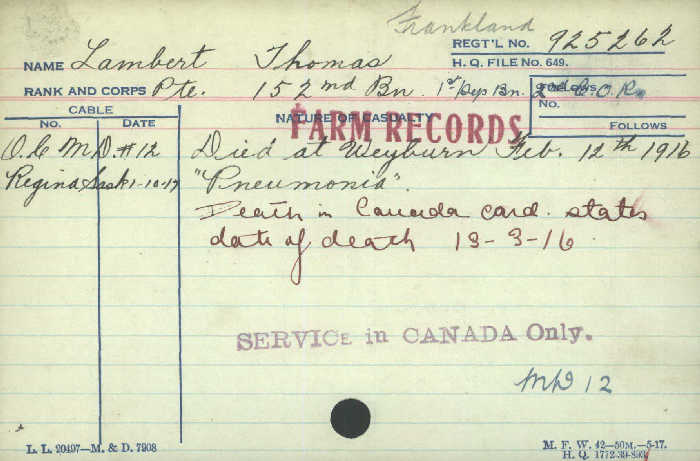 Frankland
REGT'L No. 925262
NAME Lambert Thomas
H. Q. FILE No. 649.
RANK AND CORPS Pte. 152nd Bn. 1st Dep Bn. 2nd C.O.R.
FOLLOWS
No.
CABLE
No. DATE
NATURE OF CASUALTY
FOLLOWS
FARM RECORDS
O.C M.D.#12 Died at Weyburn Feb. 12th 1916
Regina Sask 1-10-17 "Pneumonia".
Death in Canada card. states
date of death 13-3-16
SERVICE in CANADA Only.
MD 12
L. L. 20497—M. & D. 7908
M. F. W. 42—50M.—5-17.
H. Q. 1772-39-893